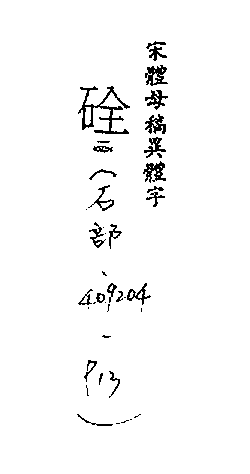 宋體母稿異體字
硂二(石部、409204-P13)